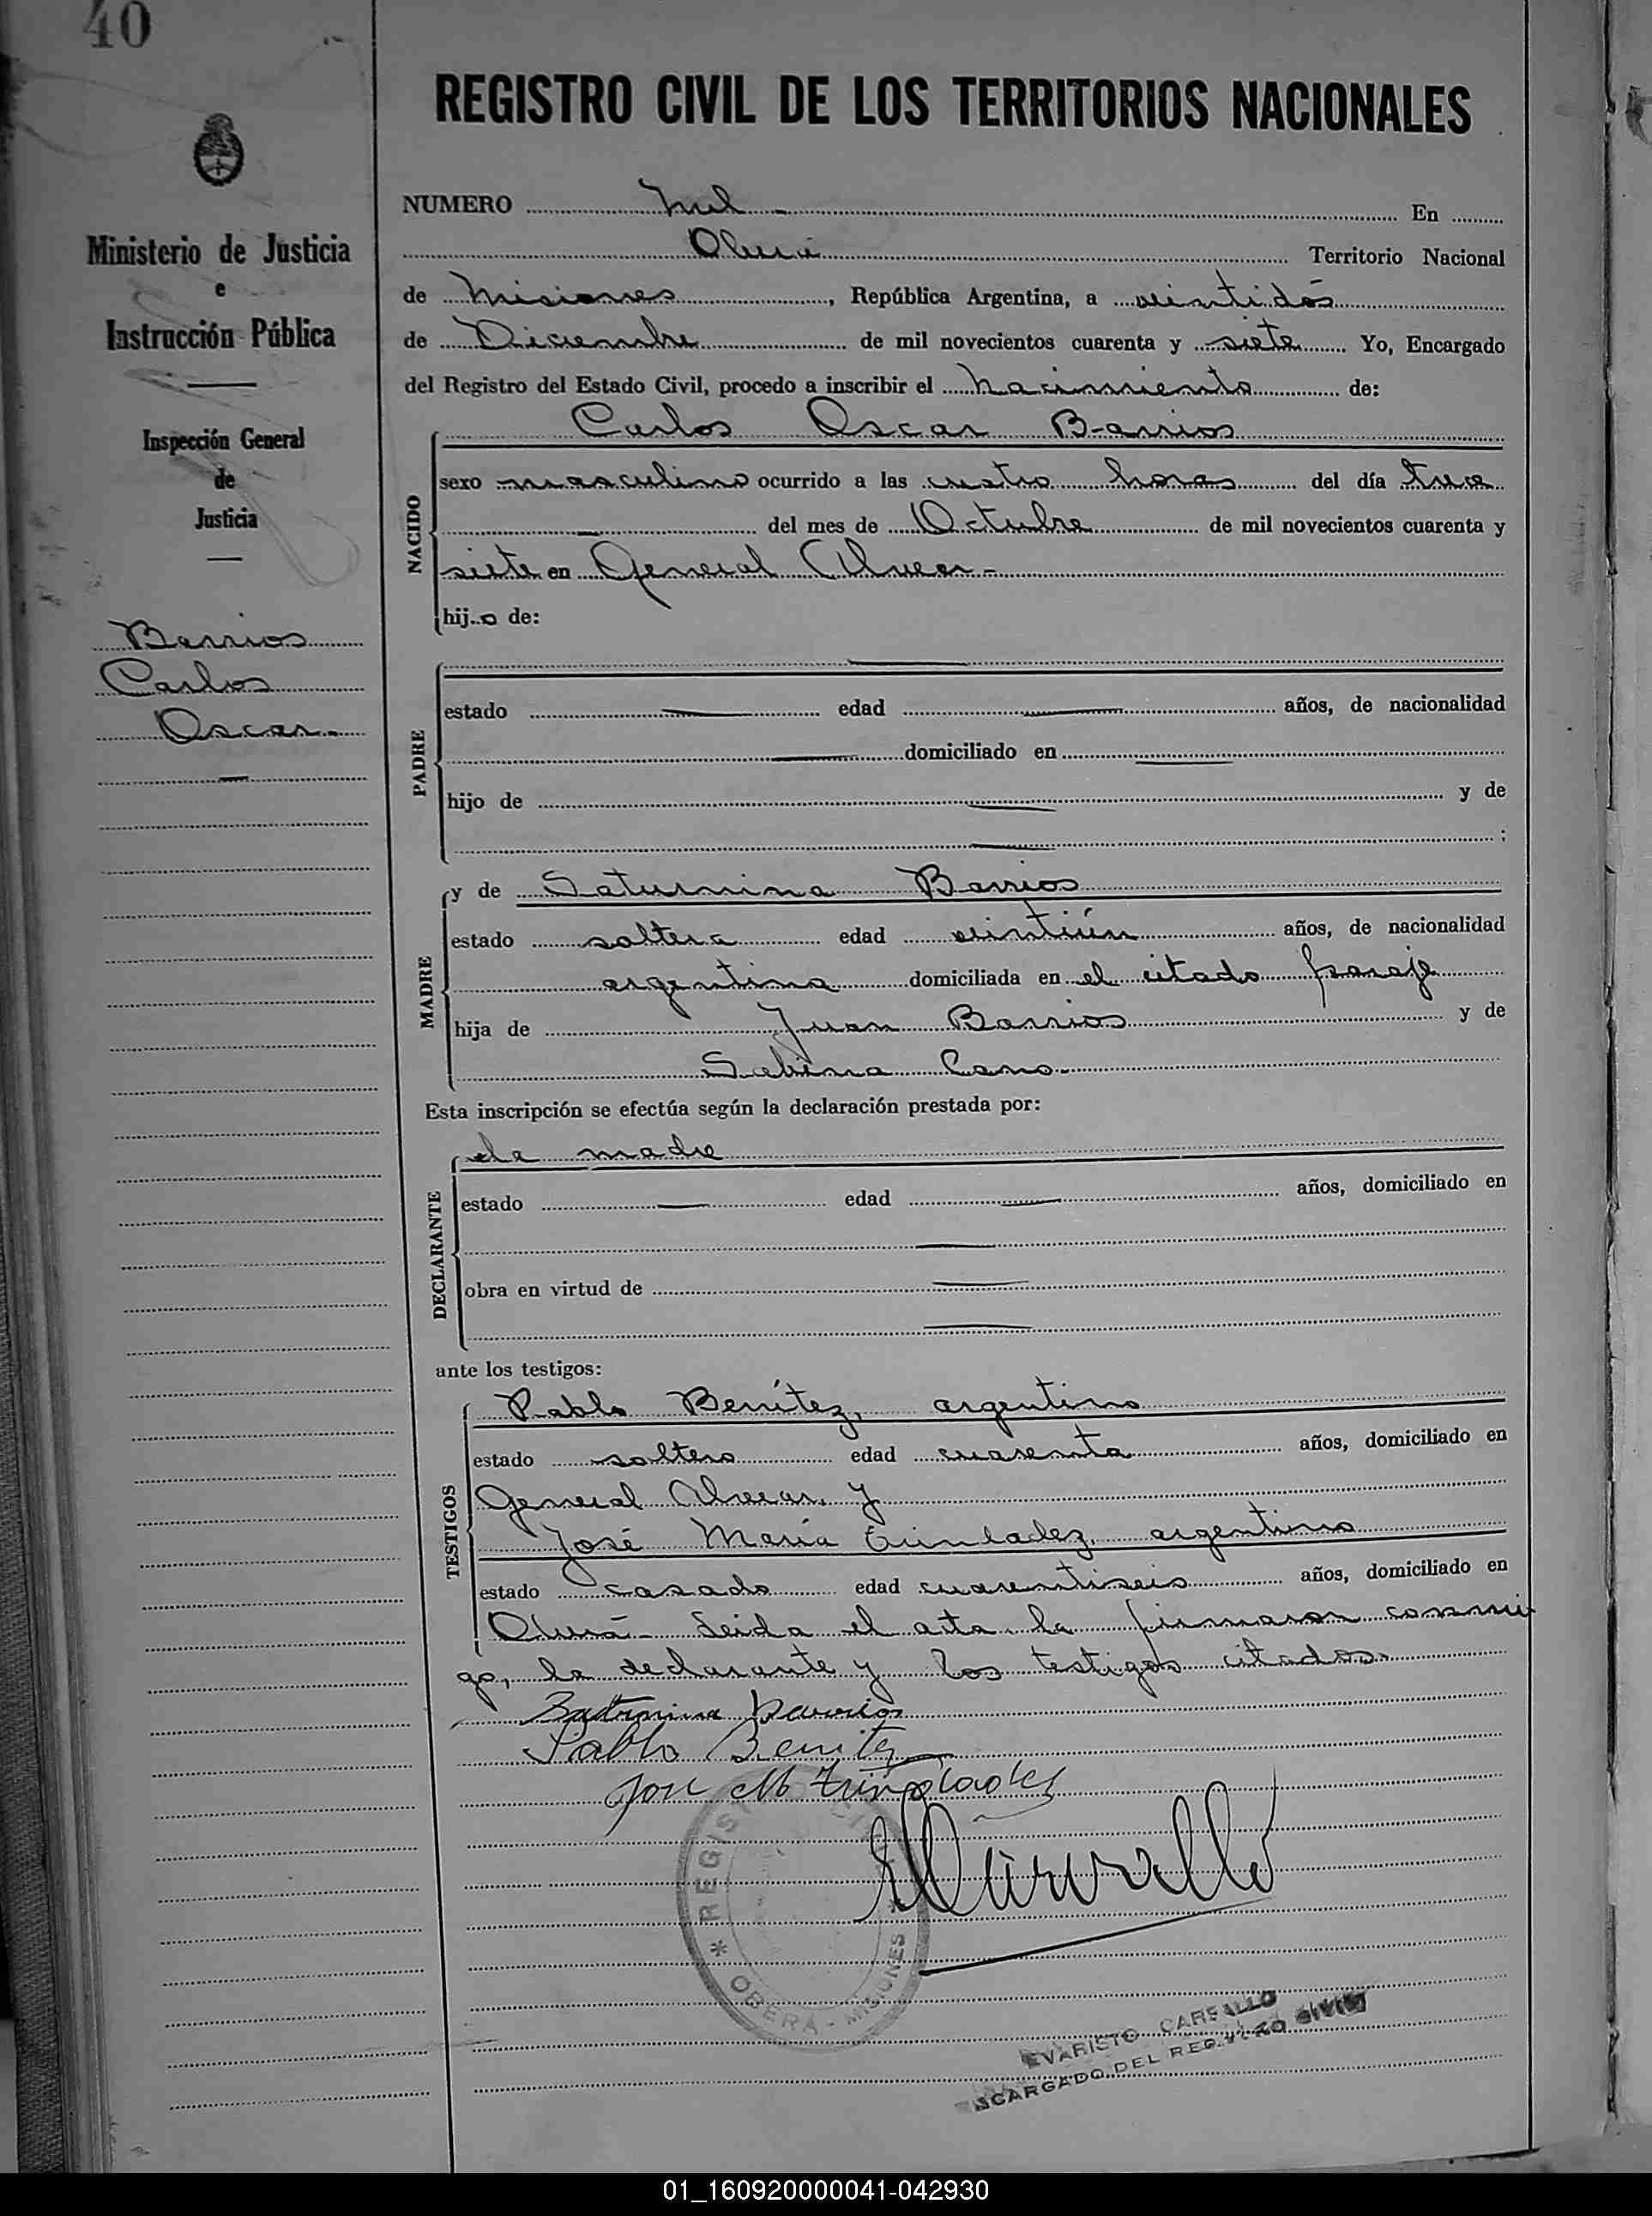 40
REGISTRO CIVIL DE LOS TERRITORIOS NACIONALES
Ministerio de Justicia
e
Instrucción Pública
Inspección General
de
Justicia
Barrios
Carlos
Oscar.-
NUMERO Mil - En
Oberá Territorio Nacional
de Misiones, República Argentina, a veintidós
de Diciembre de mil novecientos cuarenta y siete Yo, Encargado
del Registro del Estado Civil, procedo a inscribir el nacimiento de:
Carlos Oscar Barrios
NACIDO
sexo masculino ocurrido a las cuatro horas del día trece
del mes de Octubre de mil novecientos cuarenta y
siete en General Alvear.-
hijo de:
PADRE
estado edad años, de nacionalidad
domiciliado en
hijo de y de
;
MADRE
y de Saturnina Barrios
estado soltera edad veintiún años, de nacionalidad
argentina domiciliada en el citado paraje
hija de Juan Barrios y de
Sabina Cano.-
Esta inscripción se efectúa según la declaración prestada por:
DECLARANTE
la madre
estado edad años, domiciliado en
obra en virtud de
ante los testigos:
TESTIGOS
Pablo Benítez, argentino
estado soltero edad cuarenta años, domiciliado en
General Alvear, y
José María argentino
estado casado edad cuarentiseis años, domiciliado en
Oberá.- Leida el acta, la firmaron conmi
go, la declarante y los testigos citados.
Saturnina Barrios
Pablo Benitez
José M
REGISTRO CIVIL
* OBERA - MISIONES
EVARISTO CARBALLO
ENCARGADO DEL REGISTRO CIVIL
01_160920000041-042930